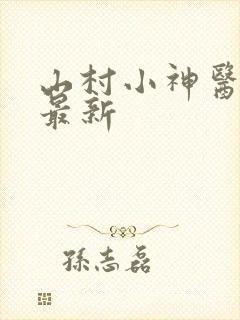 山村小神醫
最新
孫志磊